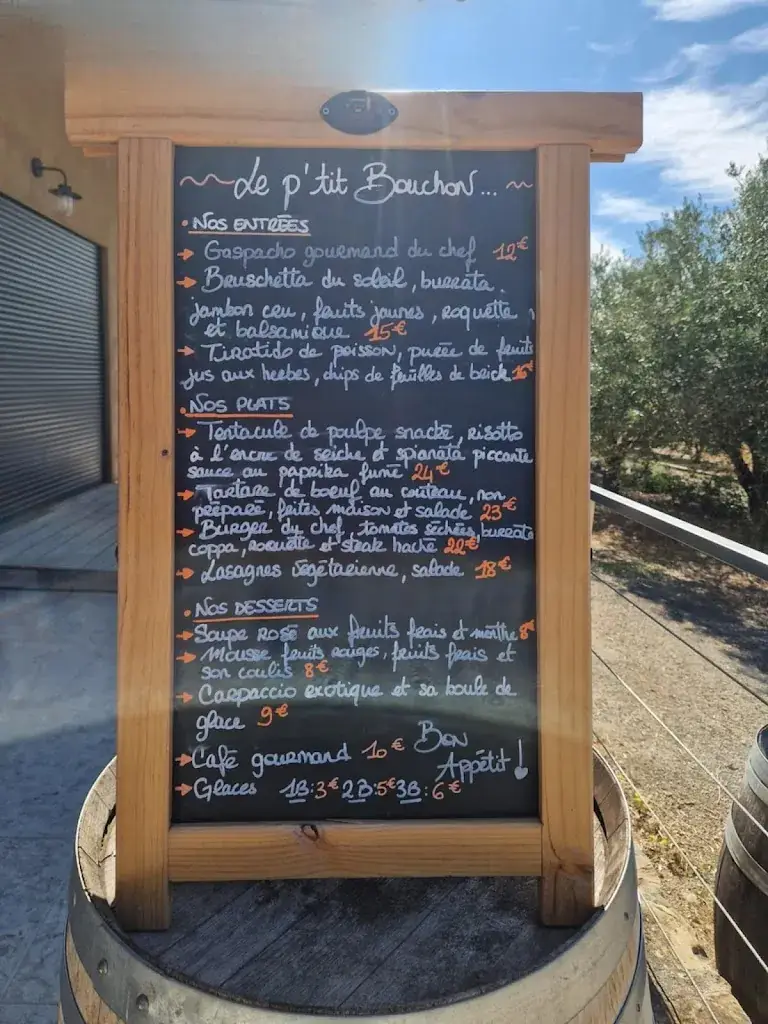 Le p'tit Bouchon...
• NOS ENTRÉES
→ Gaspacho gourmand du chef 12€
→ Bruschetta du soleil, burrata,
jambon cru, fruits jaunes, roquette
et balsamique 15€
→ Tiratido de poisson, purée de fruits
jus aux herbes, chips de feuilles de brick 16€
• NOS PLATS
→ Tentacule de poulpe snacké, risotto
à l'encre de seiche et spianata piccante
sauce au paprika fumé 24€
→ Tartare de boeuf au couteau, non
préparé, frites maison et salade 23€
→ Burger du chef, tomates séchées, burrata
coppa, roquette et steak haché 22€
→ Lasagnes végétarienne, salade 18€
• NOS DESSERTS
→ Soupe ROSÉ aux fruits frais et menthe 8€
→ Mousse fruits rouges, fruits frais et
son coulis 8€
→ Carpaccio exotique et sa boule de
glace 9€
→ Café gourmand 10€
→ Glaces 1B:3€ 2B:5€ 3B:6€
Bon
Appétit!